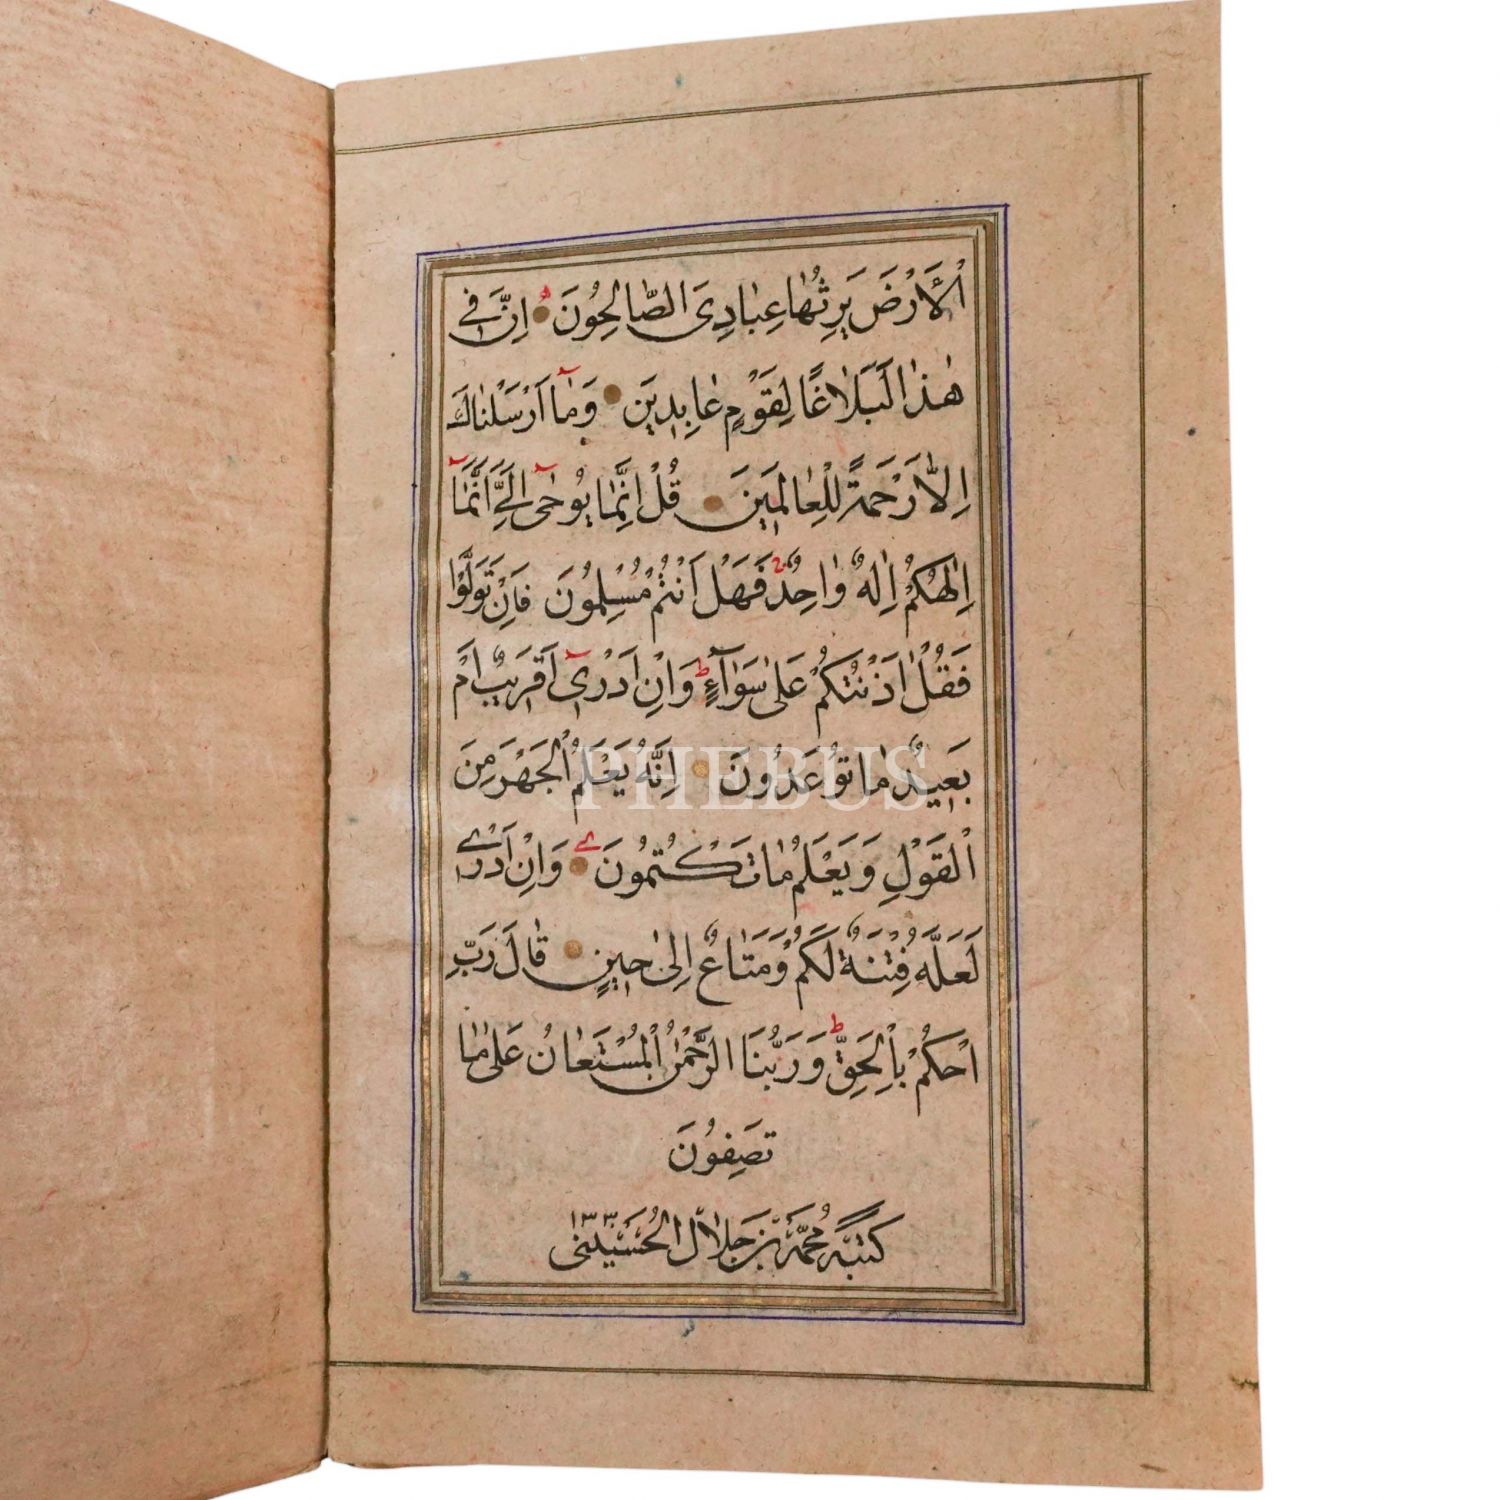 اْلاَرْضَ يَرِثُهٰا عِبٰادِىَ الصّٰالِحُونَ اِنَّ فٖى
هٰذٰا لَبَلاٰغًا لِقَوْمٍ عٰابِدٖينَ وَمٰا اَرْسَلْنٰاكَ
اِلاّٰ رَحْمَةً لِلْعٰالَمٖينَ قُلْ اِنَّمٰا يُوحٰى اِلَىَّ اَنَّمٰا
اِلٰهُكُمْ اِلٰهٌ وٰاحِدٌ فَهَلْ اَنْتُمْ مُسْلِمُونَ فَاِنْ تَوَلَّوْا
فَقُلْ اٰذَنْتُكُمْ عَلٰى سَوٰآءٍ وَاِنْ اَدْرٖى اَقَرٖيبٌ اَمْ
بَعٖيدٌ مٰا تُوعَدُونَ اِنَّهُ يَعْلَمُ الْجَهْرَ مِنَ
الْقَوْلِ وَيَعْلَمُ مٰا تَكْتُمُونَ وَاِنْ اَدْرٖى
لَعَلَّهُ فِتْنَةٌ لَكُمْ وَمَتٰاعٌ اِلٰى حٖينٍ قٰالَ رَبِّ
احْكُمْ بِالْحَقِّ وَرَبُّنَا الرَّحْمٰنُ الْمُسْتَعٰانُ عَلٰى مٰا
تَصِفُونَ
كَتَبَهُ مُحَمَّد بْن جَلاٰل الْحُسَيْنى ١٣٣
PHEBUS